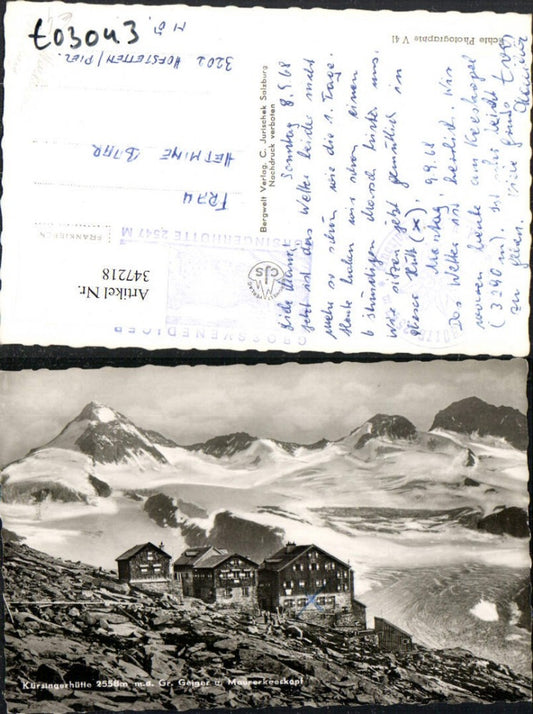 t03043
M.Ö.
3202 HOFSTETTEN/PIEL.
HERMINE
FRAU
FRANKIEREN
Artikel Nr.
347218
Bergwelt Verlag, C. Jurischek Salzburg
Nachdruck verboten
CJS
Photographie V 41
KÜRSINGERHÜTTE 2547 M
GROSSVENEDIGER
Sonntag 8.9.68
jetzt ist das Wetter leider nicht
mehr so schön wie die 1. Tage.
Heute haben wir schon einen
6 stündigen Marsch hinter uns.
Wir sitzen jetzt gemütlich in
dieser Hütte (x).
Montag, 9.9.68
Das Wetter ist herrlich. Wir
waren heute am Keeskogel
(3290 m). Ist sehr leicht
zu gehen. Viele Grüße
Kürsingerhütte 2558m m.d. Gr. Geiger u. Maurerkeeskopf
x